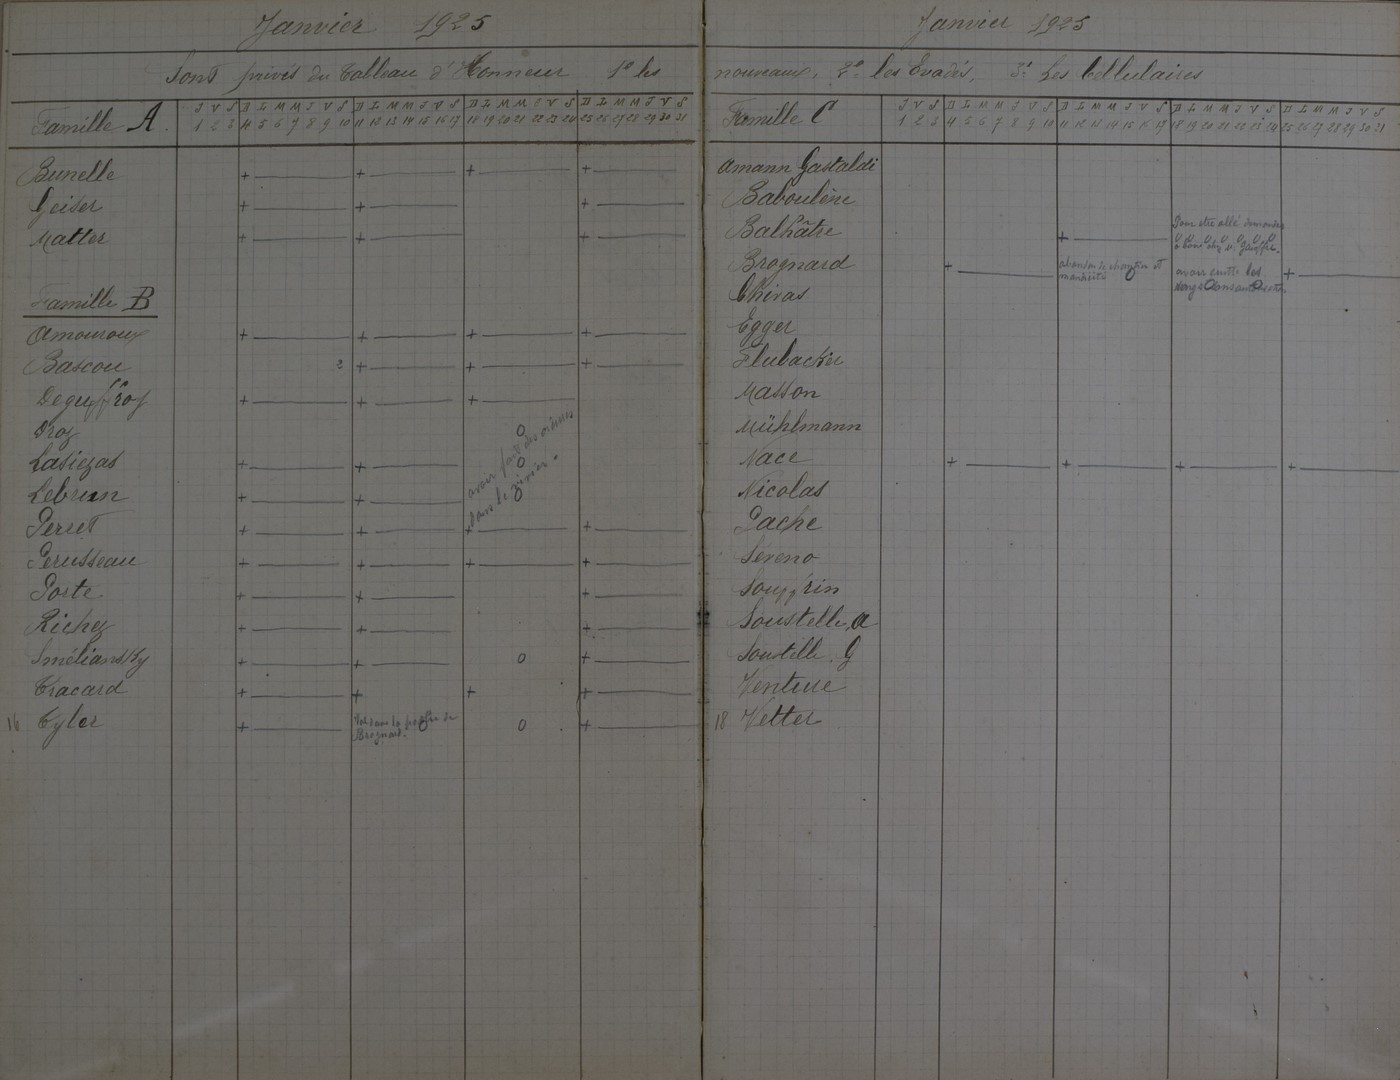 Janvier 1925
Sont privés du Tableau d'Honneur 1º les
Famille A
J V S D L M M J V S D L M M J V S D L M M J V S D L M M J V S
1 2 3 4 5 6 7 8 9 10 11 12 13 14 15 16 17 18 19 20 21 22 23 24 25 26 27 28 29 30 31
Bunelle + + + +
Geiser + + +
Matter + + +
Famille B
Amouroux + + + +
Bascou 2 + + +
Deguffroy + + +
Droz 0
Lasiezas + + 0
Lebrun + + 0
avoir fait des ordures
dans le
Perret + + + +
Perusseau + + + +
Porte + + +
Richez + + +
Sméliansky + + 0 +
Tracard + + + +
16 Tyler + 0 0 +
Brognard.
Janvier 1925
nouveaux, 2º les Evadés, 3º Les Cellulaires
Famille C
J V S D L M M J V S D L M M J V S D L M M J V S D L M M J V S
1 2 3 4 5 6 7 8 9 10 11 12 13 14 15 16 17 18 19 20 21 22 23 24 25 26 27 28 29 30 31
Amann Gastaldi
Baboulène
Pour etre allé demander
Balhâtre + 0 0 0 0 0 0
Brognard + abandon de chantier et +
mendicité
avoir quitté les
Chivas
Egger
Flubacker
Masson
Mühlmann
Nace + + + +
Nicolas
Pache
Sereno
Souffrin
Soustelle, A
Soutille. G
Venture
18 Vetter